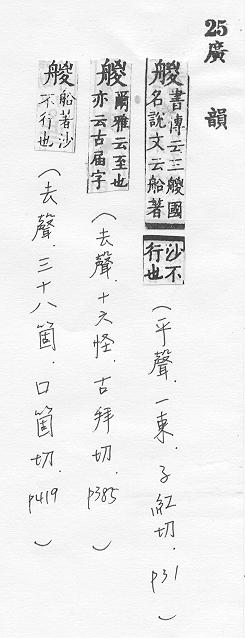 25廣韻
艐書傳云三艐國名說文云船著沙不行也
(平聲.一東.子紅切.p31)
艐爾雅云至也亦云古届字
(去聲.十六怪.古拜切.p385)
艐船著沙不行也
(去聲.三十八箇.口箇切.p419)